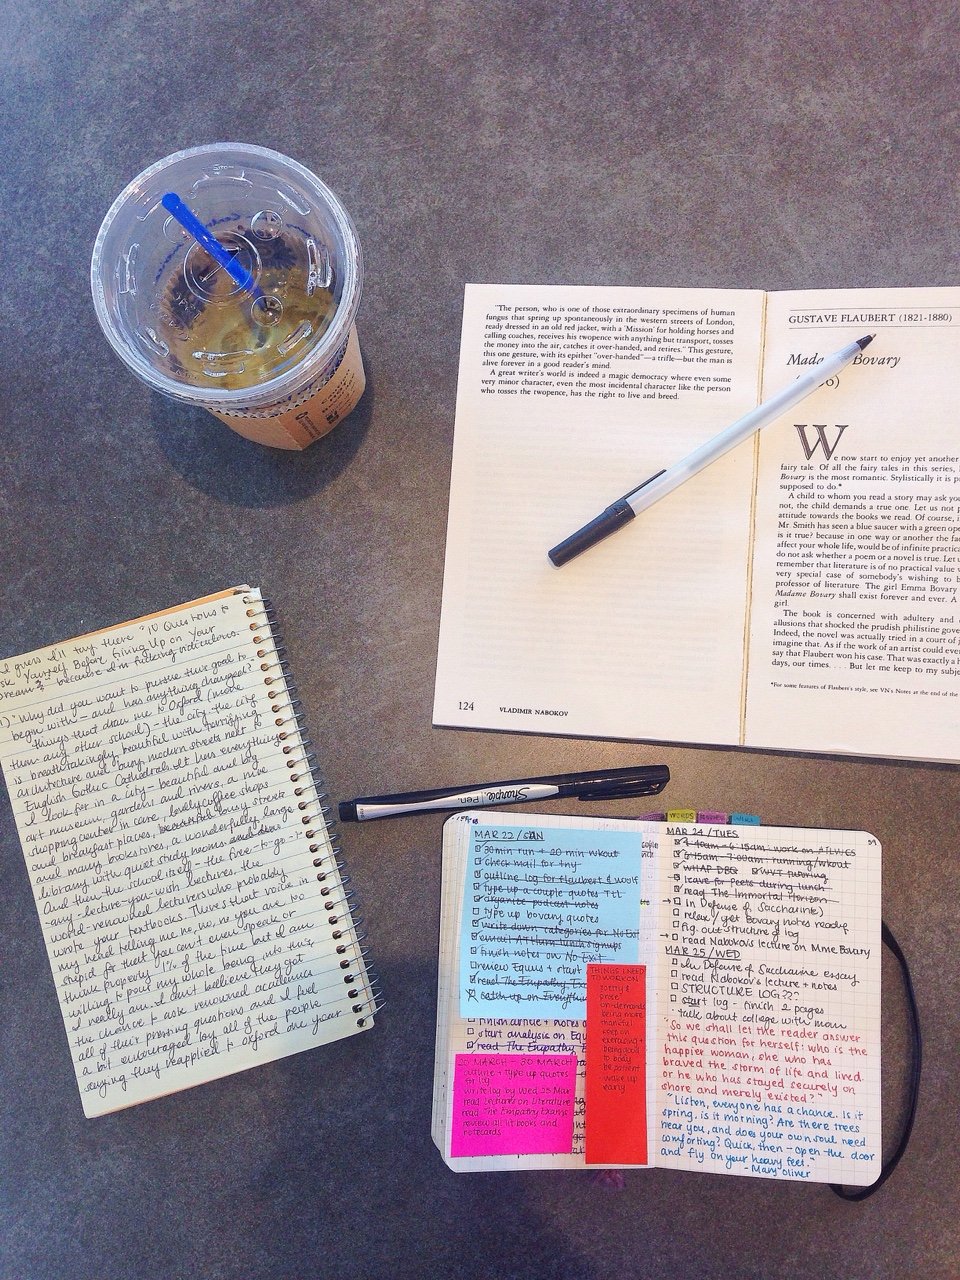 "The person, who is one of those extraordinary specimens of human
fungus that spring up spontaneously in the western streets of London,
ready dressed in an old red jacket, with a 'Mission' for holding horses and
calling coaches, receives his twopence with anything but transport, tosses
the money into the air, catches it over-handed, and retires." This gesture,
this one gesture, with its epithet "over-handed"—a trifle—but the man is
alive forever in a good reader's mind.
A great writer's world is indeed a magic democracy where even some
very minor character, even the most incidental character like the person
who tosses the twopence, has the right to live and breed.
124 VLADIMIR NABOKOV
GUSTAVE FLAUBERT (1821-1880)
Bovary
We now start to enjoy yet another
fairy tale. Of all the fairy tales in this series,
Bovary is the most romantic. Stylistically it is
supposed to do.*
A child to whom you read a story may ask you
not, the child demands a true one. Let us not
attitude towards the books we read. Of course,
Mr. Smith has seen a blue saucer with a green
is it true? because in one way or another the
affect your whole life, would be of infinite
do not ask whether a poem or a novel is true. Let
remember that literature is of no practical value
very special case of somebody's wishing to
professor of literature. The girl Emma Bovary
Madame Bovary shall exist forever and ever. A
girl.
The book is concerned with adultery and
allusions that shocked the prudish philistine
Indeed, the novel was actually tried in a court of
imagine that. As if the work of an artist could
say that Flaubert won his case. That was exactly
days, our times. . . . But let me keep to my
*For some features of Flaubert's style, see VN's Notes at the end of the
I guess I'll try these "10 Questions to
Yourself Before Giving Up on Your
because I'm
1) "Why did you want to pursue this goal to
begin with - and has anything changed?
things that draw me to Oxford (more
than any other school) - the city. the city
is breathtakingly beautiful with
architecture and busy modern streets next to
English Gothic Cathedrals. It has everything
I look for in a city - beautiful and big
art museum, gardens and rivers, a nice
shopping center, lovely coffee shops
and breakfast places, beautiful busy streets
and many bookstores, a wonderfully large
library with quiet study rooms
And then the school itself - the free-to-go-to-
any-lecture-you-wish lectures, the
world-renowned lecturers who probably
wrote your textbooks. There's that voice in
my head telling me no, no no you are too
stupid for that you can't even speak or
think properly 1% of the time but I am
willing to pour my whole being into this,
I really am. I can't believe they got
the chance to ask renowned academics
all of their questions and I feel
a bit encouraged by all of the people
saying they reapplied to Oxford one year
Sharpie Pen.
WORDS
MAR 22/SUN
30min run + 20 min wkout
check mail for tny
outline log for flaubert & woolf
type up a couple quotes TtL
organize podcast notes
type up bovary quotes
write down categories for No Exit
email lunch signups
finish notes on No Exit
review Equus + start
read The Empathy
catch up on everything
start analysis on
read The Empathy
THINGS I NEED
TO WORK ON
poetry &
prose
on-demand
being more
thankful
keep on
exercising +
being good
to body
be patient
wake up
early
20 MARCH - 30 MARCH
outline + type up quotes
for log
write log by Wed 25 Mar
read Lectures on Literature
read The Empathy Exams
review all lit books and
notecards
MAR 24/TUES
running/wkout
WHAP DBQ tutoring
leave for Peets during lunch
read The Immortal Horizon
In Defense of Saccharin(e)
relax/get Bovary notes ready
fig. out structure of log
read Nabokov's lecture on Mme Bovary
MAR 25/WED
In Defense of Saccharine essay
read Nabokov's lecture + notes
STRUCTURE LOG???
start log - finish 2 pages
talk about college with mom
"So we shall let the reader answer
this question for herself: who is the
happier woman, she who has
braved the storm of life and lived
or he who has stayed securely on
shore and merely existed?"
"Listen, everyone has a chance. Is it
spring, is it morning? Are there trees
near you, and does your own soul need
comforting? Quick, then - open the door
and fly on your heavy feet."
- Mary Oliver